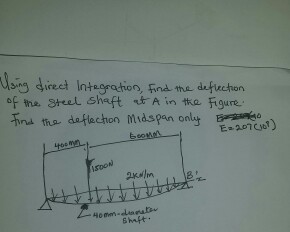 Using direct Integration, find the deflection
of the steel shaft at A in the figure.
Find the deflection Midspan only
E=207(10⁹)
400mm
600mm
1500N
2KN/m
B
40mm-diameter
shaft.